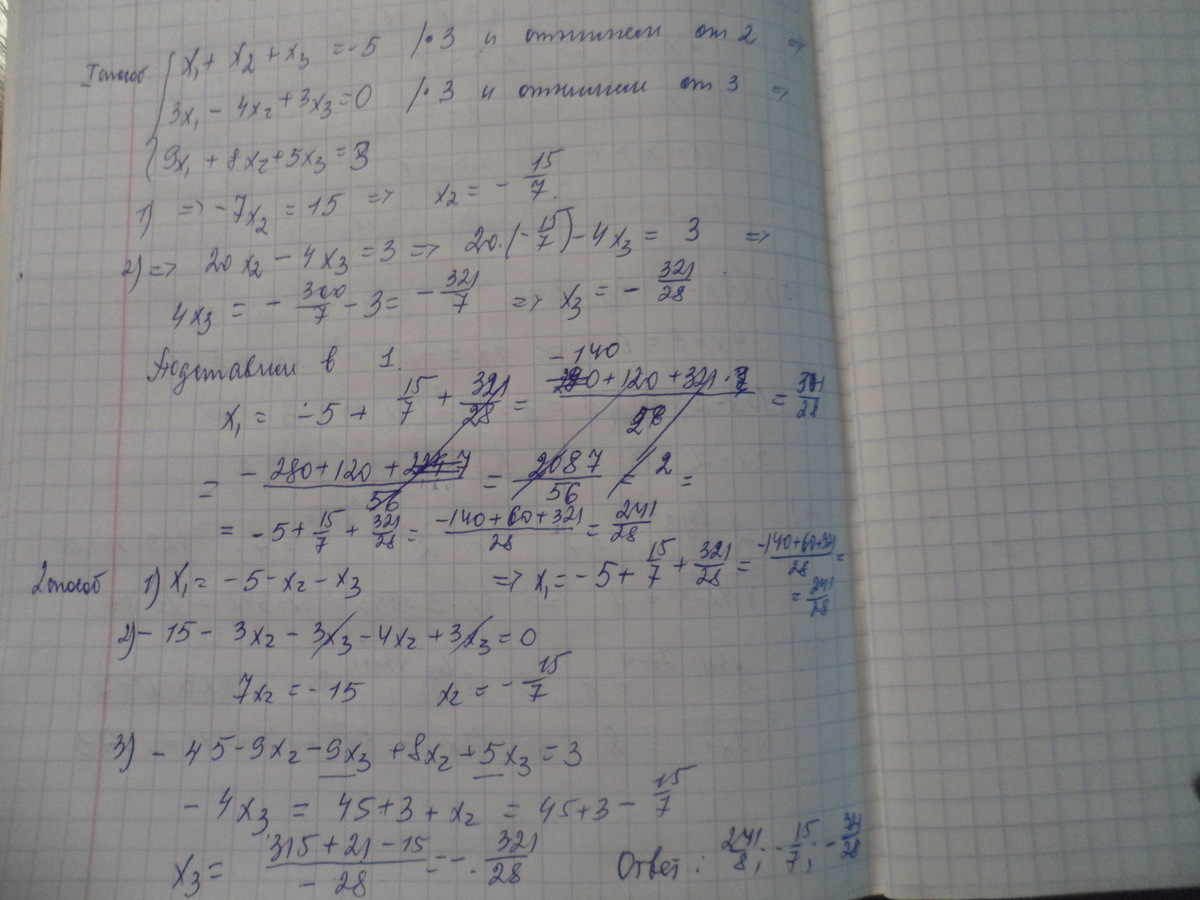 I способ { x₁ + x₂ + x₃ = -5 /·3 и отнимем от 2 ⇒
3x₁ - 4x₂ + 3x₃ = 0 /·3 и отнимем от 3 ⇒
9x₁ + 8x₂ + 5x₃ = 3
1) ⇒ -7x₂ = 15 ⇒ x₂ = - 15/7.
2) ⇒ 20x₂ - 4x₃ = 3 ⇒ 20·(-15/7) - 4x₃ = 3 ⇒
4x₃ = - 300/7 - 3 = - 321/7 ⇒ x₃ = - 321/28
Подставим в 1.
x₁ = -5 + 15/7 + 321/28 =
= -280+120+ /56 = 2087/56 = 2 =
= -5 + 15/7 + 321/28 = -140+60+321/28 = 241/28
2 способ 1) x₁ = -5 - x₂ - x₃ ⇒ x₁ = -5 + 15/7 + 321/28 = -140+60+321/28 =
= 241/28
2) -15 - 3x₂ - 3x₃ - 4x₂ + 3x₃ = 0
7x₂ = -15 x₂ = - 15/7
3) - 45 - 9x₂ - 9x₃ + 8x₂ + 5x₃ = 3
- 4x₃ = 45+3 + x₂ = 45+3 - 15/7
x₃ = 315+21-15/-28 = - 321/28 Ответ: 241/8; - 15/7; -